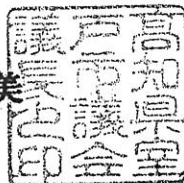 美
高知県室
戸市議会
議長之印